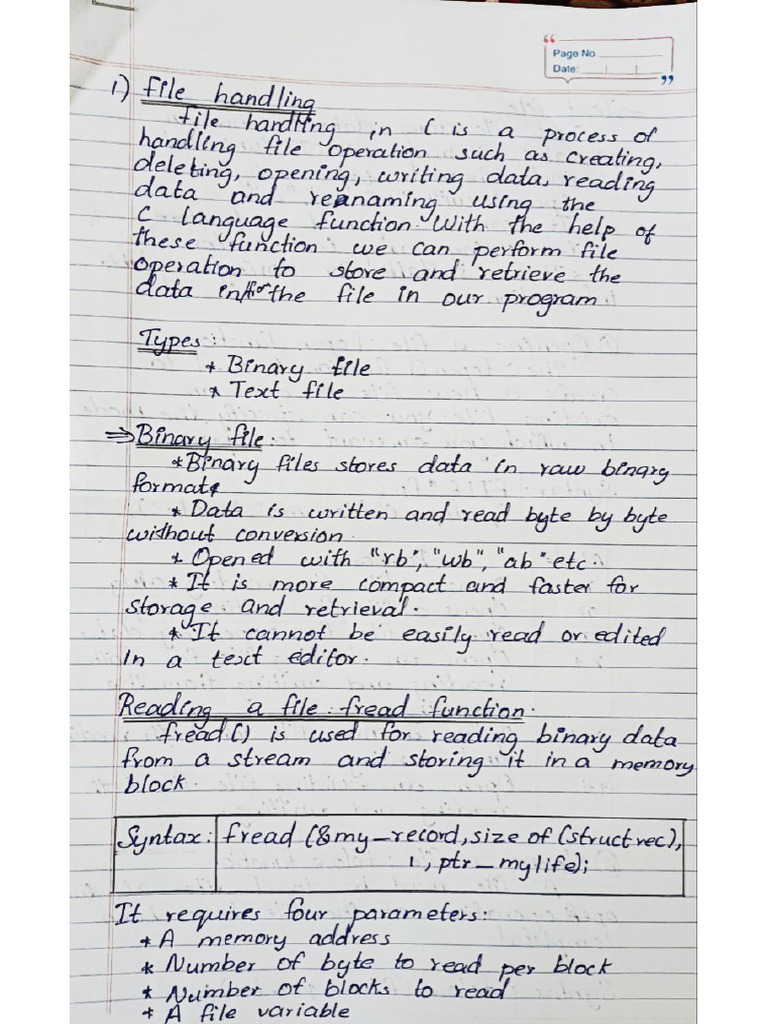 Page No.
Date:
1) File handling
File handling in C is a process of
handling file operation such as creating,
deleting, opening, writing data, reading
data and renaming using the
C language function. With the help of
these function we can perform file
operation to store and retrieve the
data in/for the file in our program
Types:
* Binary file
* Text file
⇒ Binary file.
* Binary files stores data in raw binary
format.
* Data is written and read byte by byte
without conversion.
* Opened with "rb", "wb", "ab" etc.
* It is more compact and faster for
storage and retrieval.
* It cannot be easily read or edited
in a text editor.
Reading a file fread function.
fread() is used for reading binary data
from a stream and storing it in a memory
block.
Syntax: fread (&my_record, size of (struct rec),
1, ptr_mylife);
It requires four parameters:
* A memory address
* Number of byte to read per block
* Number of blocks to read
* A file variable